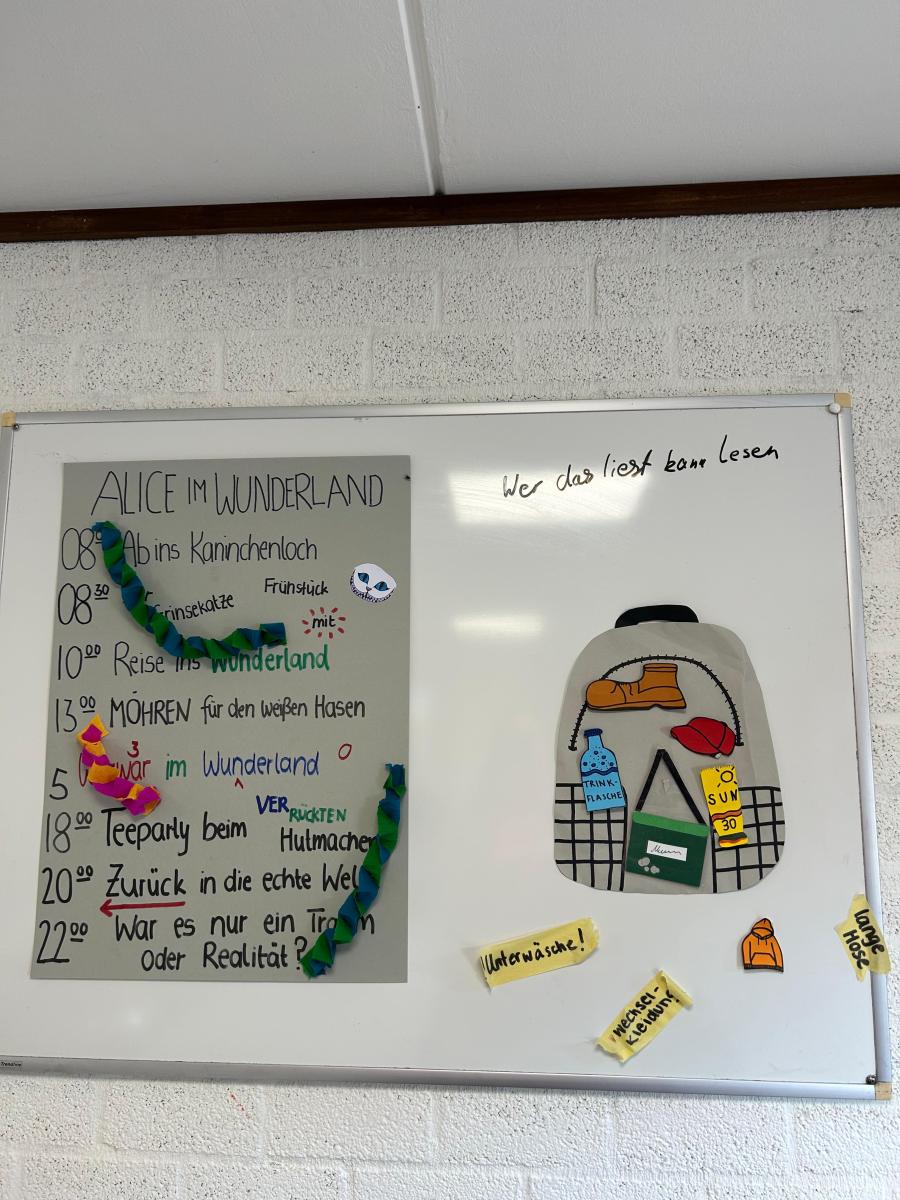 ALICE IM WUNDERLAND
08 Ab ins Kaninchenloch
08 30 Frühstück
mit
Grinsekatze
10 00 Reise ins Wunderland
13 00 MÖHREN für den weißen Hasen
3
war im Wunderland
5
18 00 Teeparty beim VERRÜCKTEN
Hutmacher
20 00 Zurück in die echte Wel
22 00 War es nur ein Traum
oder Realität?
Wer das liest kann lesen
TRINK-
FLASCHE
SUN
30
Unterwäsche!
Wechsel-
kleidung
lange
Hose